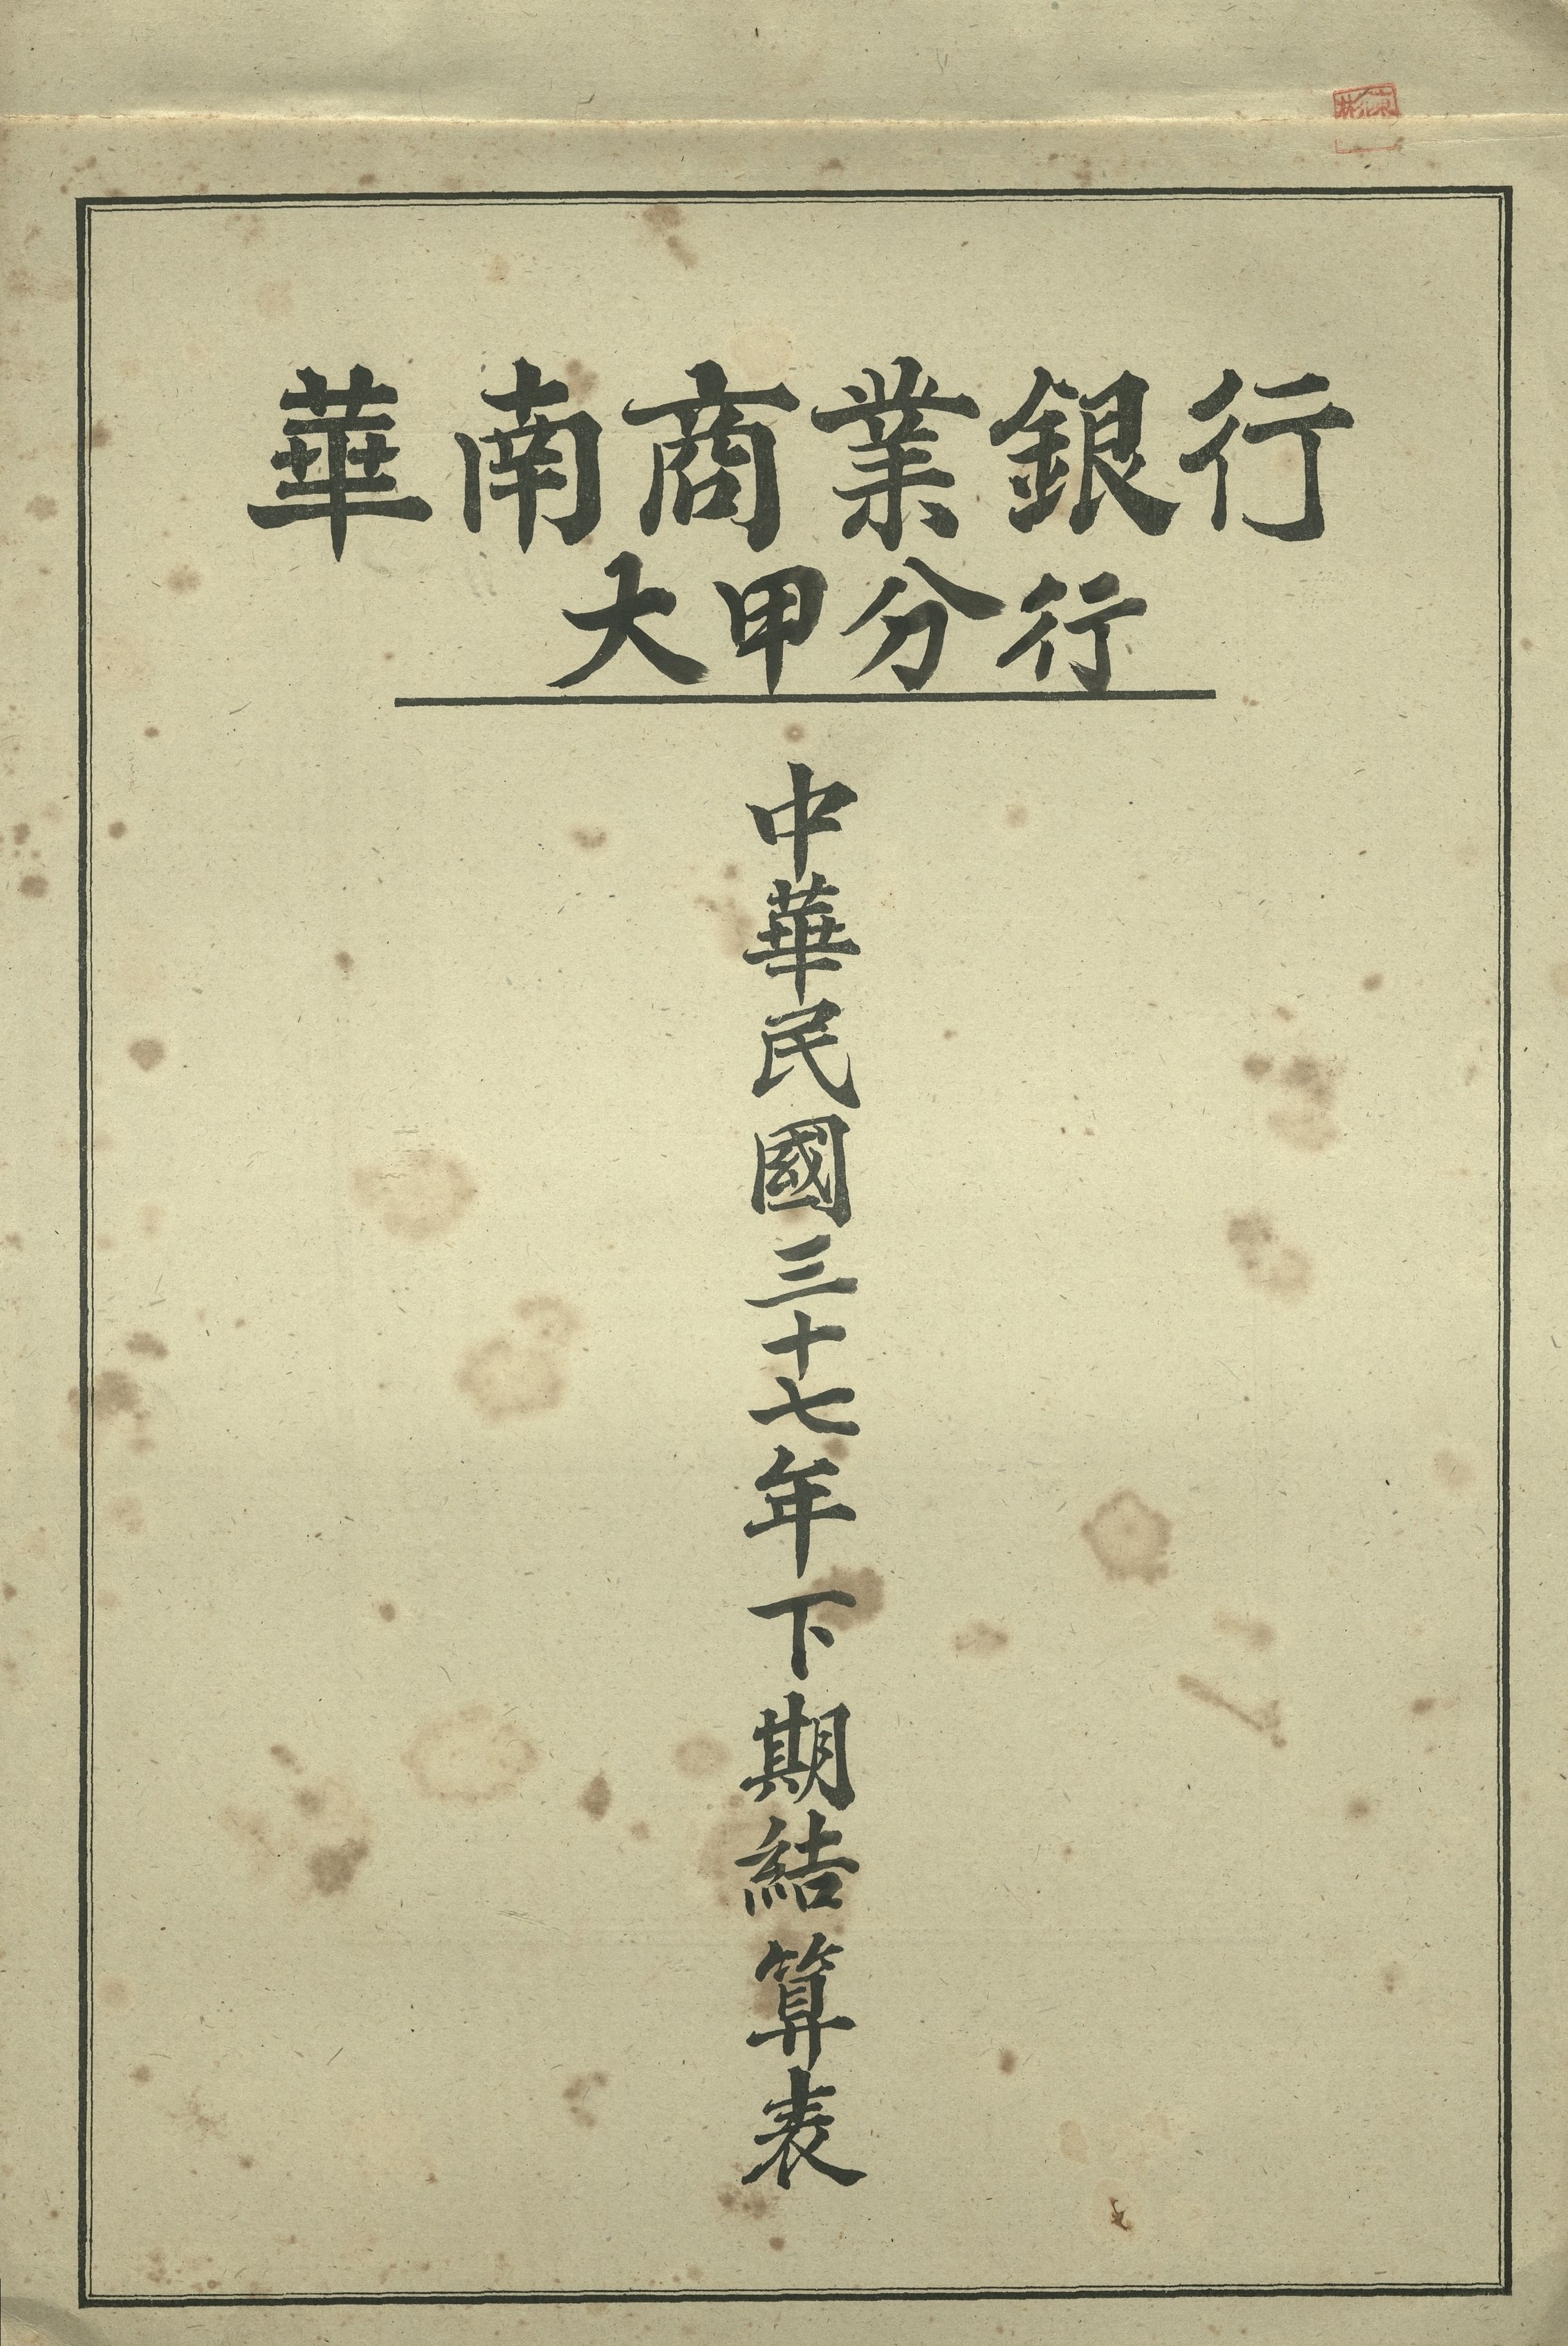 華南商業銀行
大甲分行
中華民國三十七年下期結算表